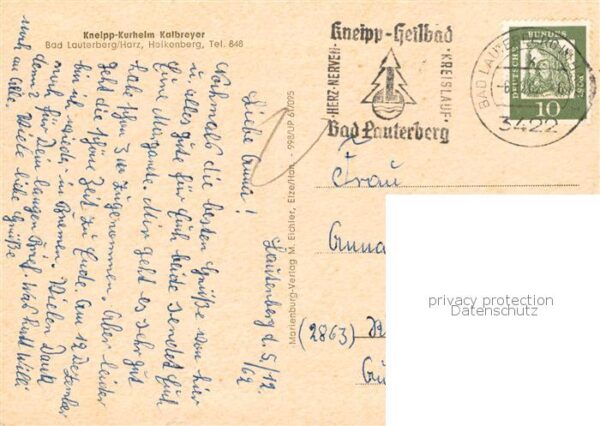 Kneipp-Kurheim Kalbreyer
Bad Lauterberg/Harz, Heikenberg, Tel. 848
Kneipp-Heilbad
HERZ·NERVEN·
KREISLAUF·
Bad Lauterberg
BAD LAUTERBERG
3422
DEUTSCHE BUNDESPOST
10
Marienburg-Verlag M. Eichler, Elze/Han. - 998/UP 61/095
Lautenberg d. 5/12.
62
Liebe Anna!
Nochmals die besten Grüße von hier
u. alles gute für Euch beide sendet Euch
Eure Margarete. Mir geht es sehr gut
habe schon 3 zugenommen. Aber leider
geht die schöne Zeit zu Ende. Am 12 Dezember
bin ich wieder in Bremen. Vielen Dank
noch für Dein langen Brief. Was macht Willi
Viele liebe Grüße
Frau
Anna
(2863)
privacy protection
Datenschutz